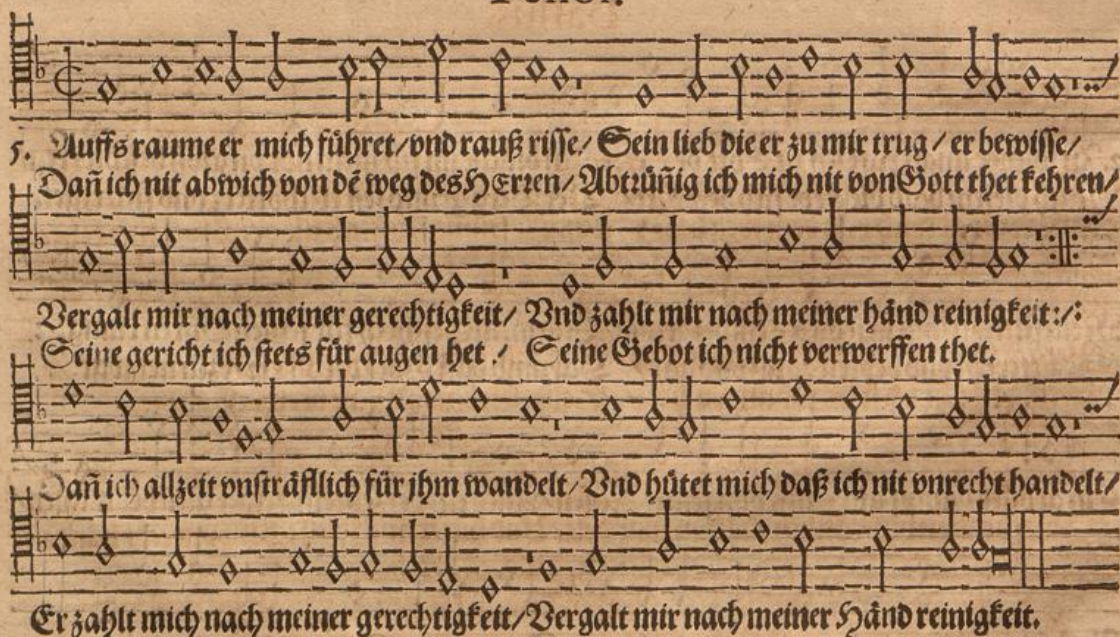 Tenor.
5. Auffs raume er mich führet/vnd rauß risse/ Sein lieb die er zu mir trug / er bewisse/
Dañ ich nit abwich von dē weg des HErren/ Abtrüñig ich mich nit von Gott thet kehren/
Vergalt mir nach meiner gerechtigkeit/ Vnd zahlt mir nach meiner händ reinigkeit:/:
Seine gericht ich stets für augen het / Seine Gebot ich nicht verwerffen thet.
Dañ ich allzeit vnsträfflich für jhm wandelt/Vnd hütet mich daß ich nit vnrecht handelt/
Er zahlt mich nach meiner gerechtigkeit/Vergalt mir nach meiner Händ reinigkeit.